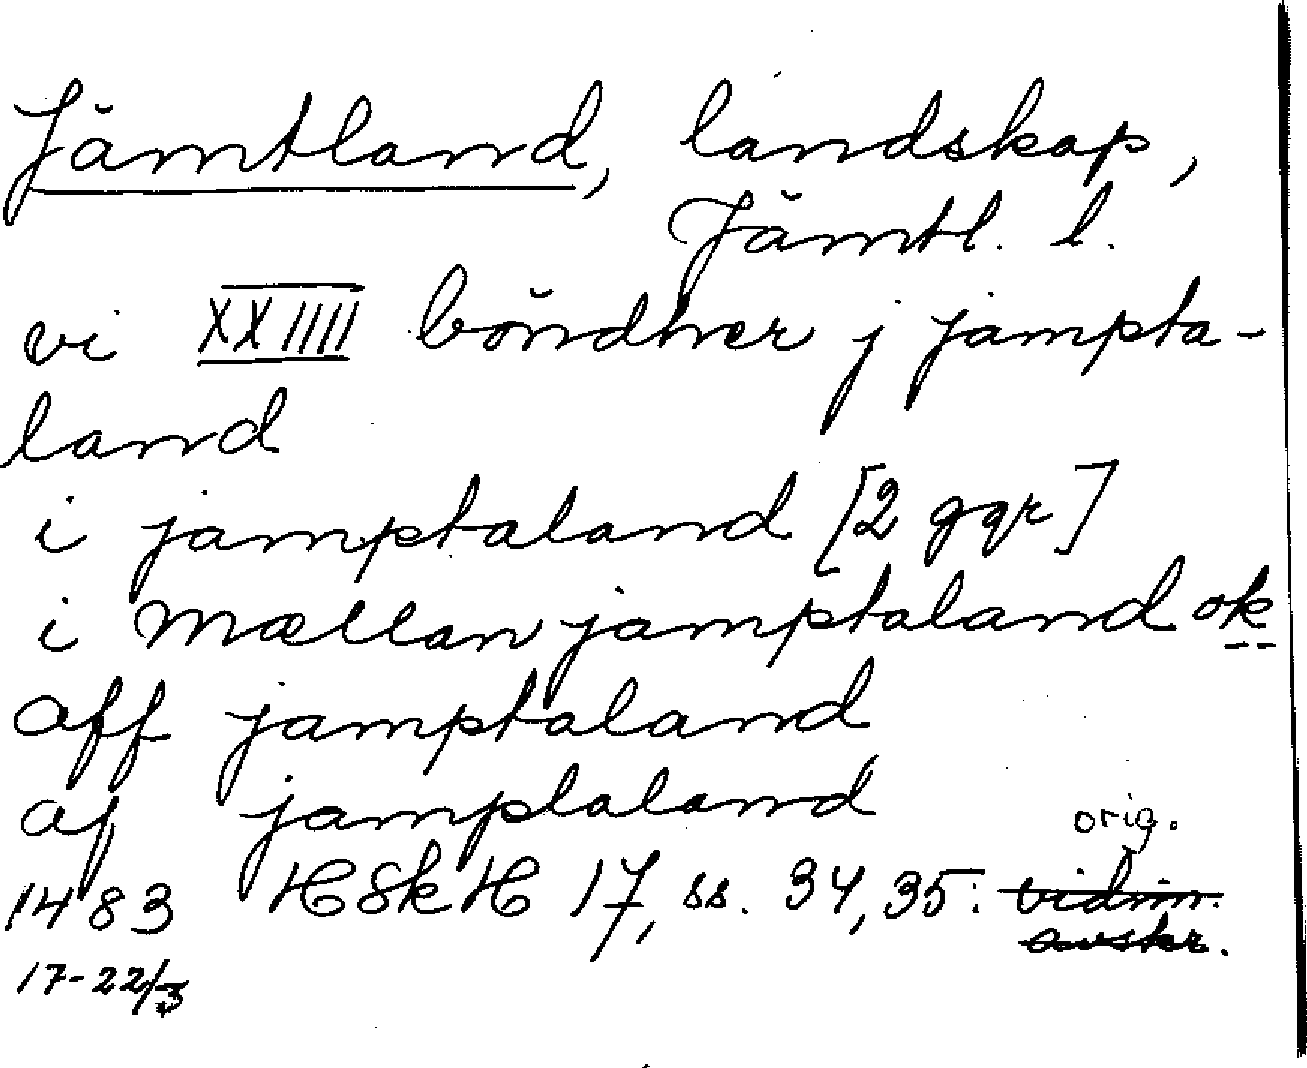 Jämtland, landskap,
Jämtl. l.
vi XXIIII böndher j jampta-
land
i jamptaland [2 ggr]
i mællan jamptaland ok
aff jamptaland
af jamptaland
orig.
1483 HSkH 17, ss. 34, 35: vidim.
avskr.
17-22/3